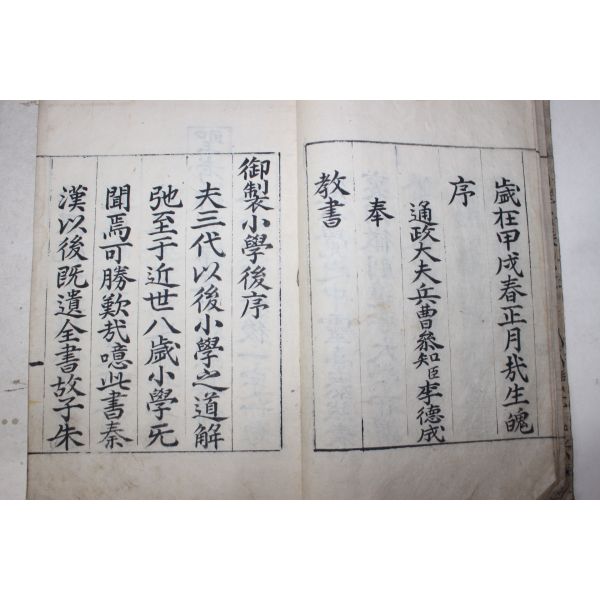 歲在甲戌春正月哉生魄
序
通政大夫兵曹叅知臣李德成
奉
教書
御製小學後序
夫三代以後小學之道解
弛至于近世八歲小學旡
聞焉可勝歎㢤噫此書秦
漢以後旣遺全書故子朱